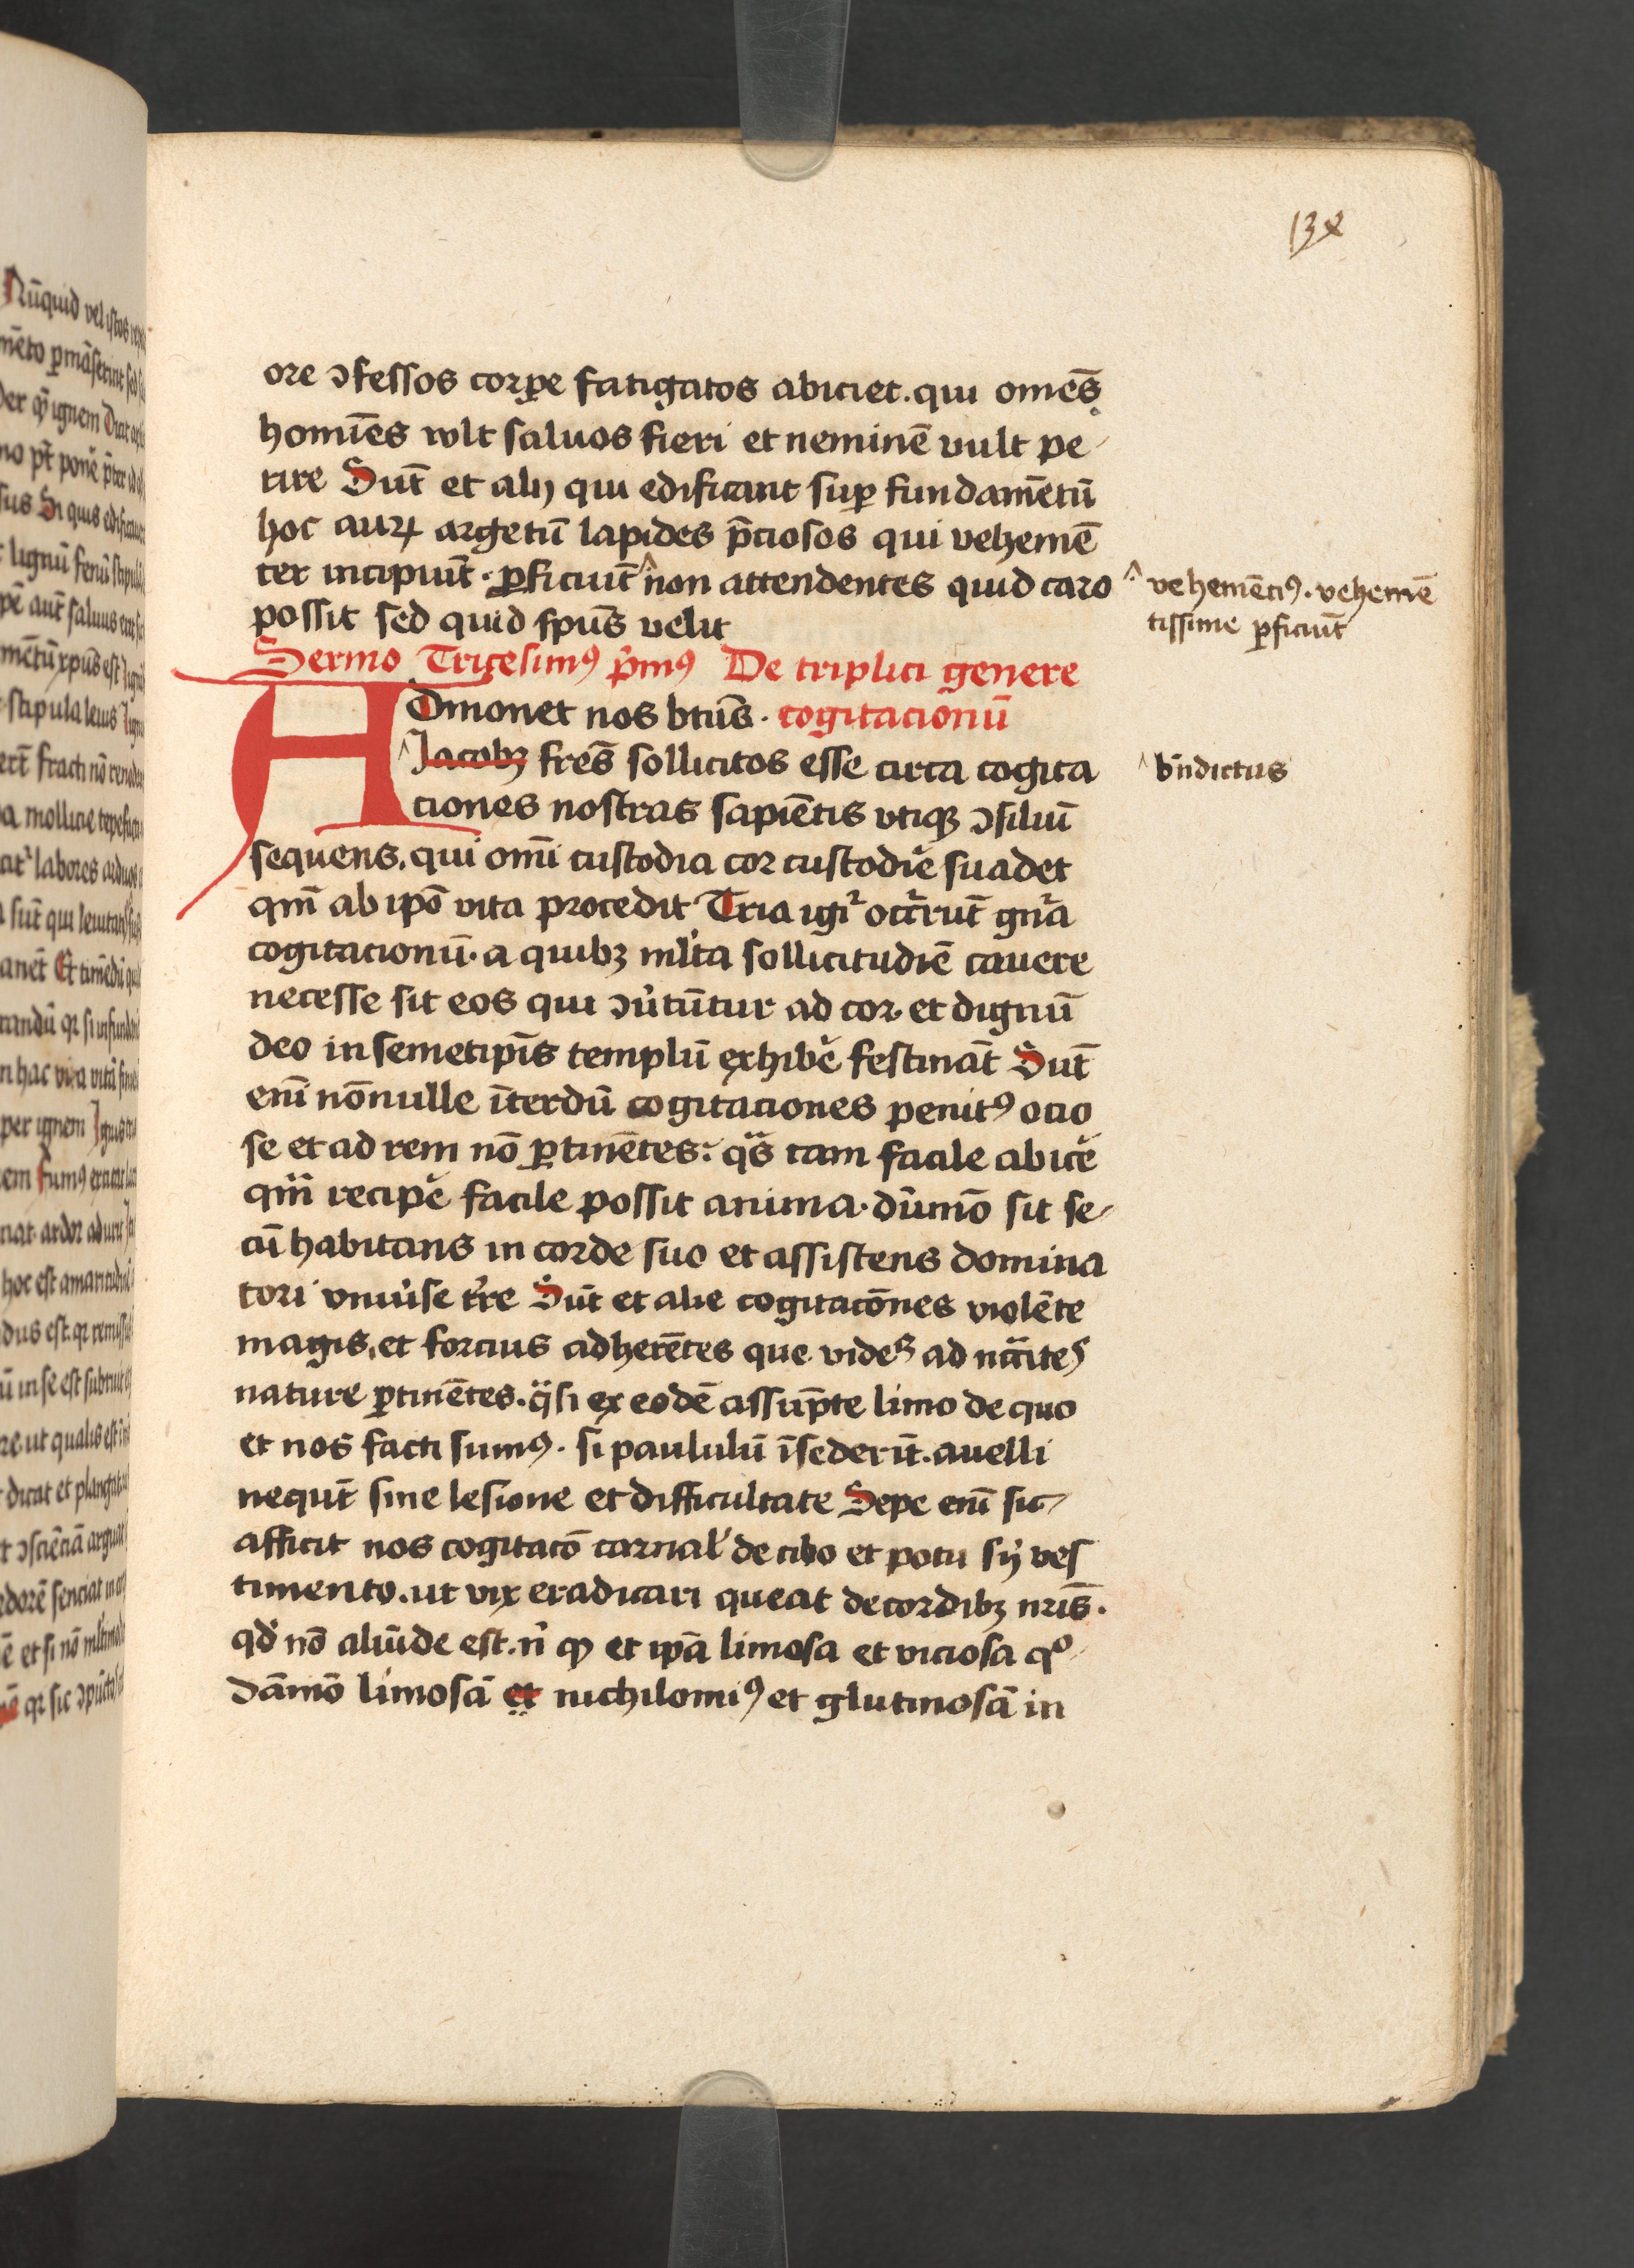 134
ore ɔfessos corꝑe fatigatos abiciet. qui omēs
homīes wlt saluos fieri et neminē uult pe-
rire Sūt et alij qui edificant suꝑ fundamētū
hoc auꝝ argētū lapides p̄ciosos qui vehemē
ter incipiūt. ꝑficiūt ^ non attendentes quid caro
^ vehemēciꝰ. vehemē
tissime ꝑficiūt
possit sed quid spūs velit
Sermo Tricesimꝰ p̄mꝰ De triplici genere
Admonet nos btūs. cogitacionū
^ Jacobꝫ frēs sollicitos esse circa cogita
^ bn̄dictus
ciones nostras sapiētis vtiqꝫ ɔsiliū
sequens. qui omī custodia cor custodīe suadet
qm̄ ab ipō vita procedit Tria igiᷣ occᷣrūt gn̄a
cogitacionū. a quibꝫ ml̄ta sollicitudīe cauere
necesse sit eos qui ɔu̓tūtur ad cor. et dignū
deo in semetip̄is templū exhibē festināt Sūt
enī nōnulle īterdū cogitaciones penitꝰ ocio
se et ad rem nō ꝑtinētes: qᷓs tam facile abicē
qᷓm recipē facile possit anima. dūmō sit se-
cū habitans in corde suo et assistens domina
tori vniu̓se tr̄re Sūt et alie cogitacōnes violēte
magis. et forcius adherētes que videᷣ ad nc̄cīteſ
nature ꝑtinētes. qᷓsi ex eodē assūpte limo de quo
et nos facti sumꝰ. si paululū īsederīt. auelli
nequt̄ sine lesione et difficultate Sepe enī sic
afficit nos cogitacō carnal̓ de cibo et potu sy̓ ves
timento. ut vix eradicari queat de cordibꝫ nr̄is.
qd̓ nō aliūde est. n̓ ꝙ et ip̄a limosa et viciosa qͦ-
dāmō limosā et nichilomīꝰ et glutinosā in